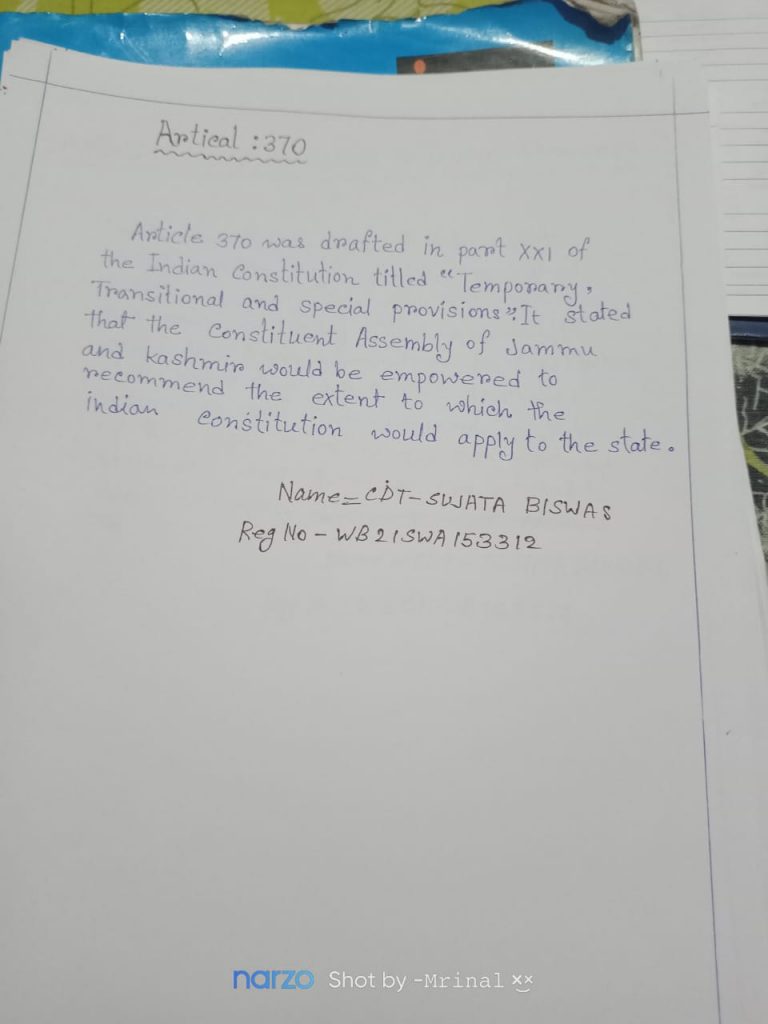 Artical : 370
Article 370 was drafted in part XXI of
the Indian Constitution titled "Temporary,
Transitional and special provisions". It stated
that the Constituent Assembly of Jammu
and kashmir would be empowered to
recommend the extent to which the
indian constitution would apply to the state.
Name = CDT- SUJATA BISWAS
Reg No - WB21SWA153312
narzo Shot by -Mrinal ××